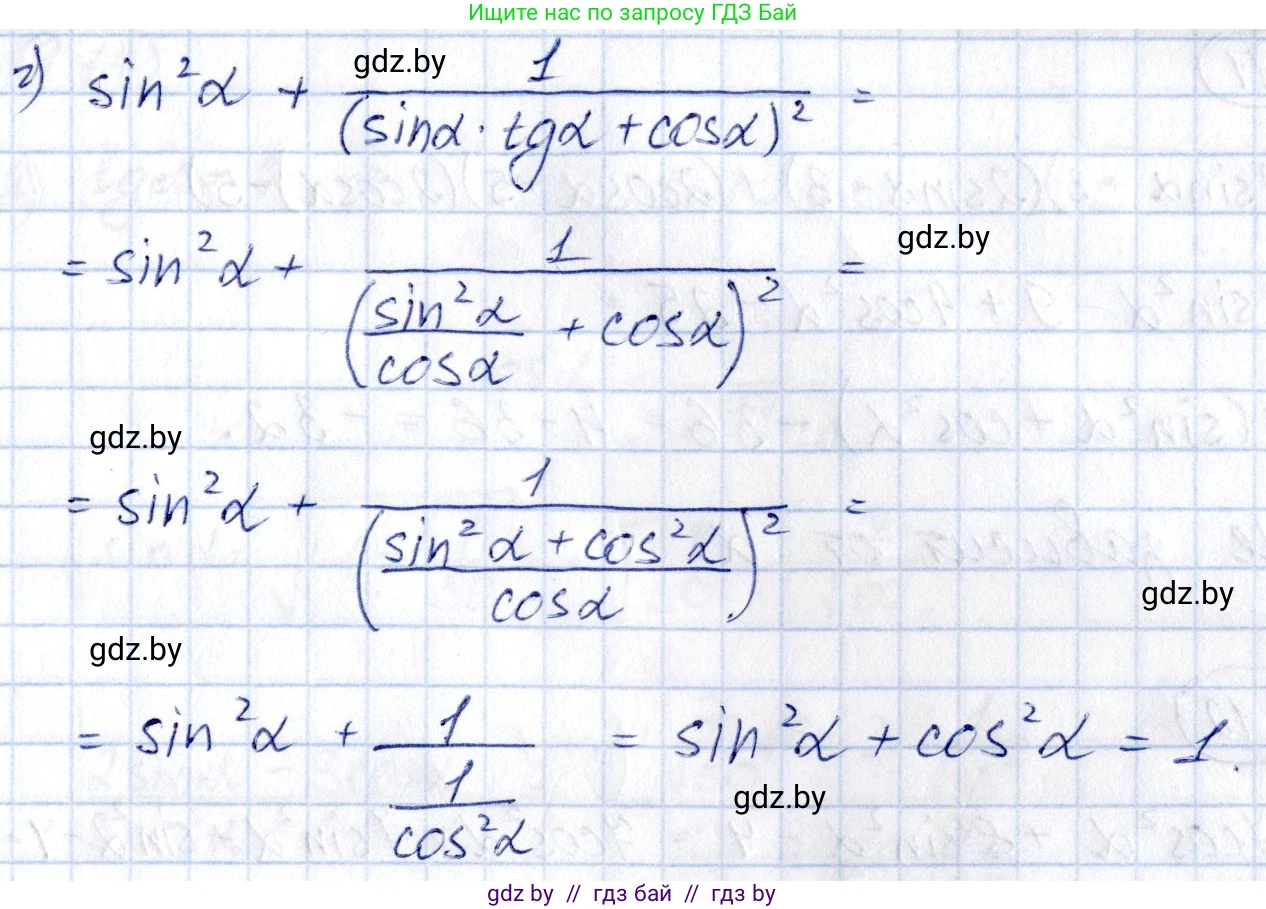 Ищите нас по запросу ГДЗ Бай
г) sin²α + 1/(sinα · tgα + cosα)² =
gdz.by
= sin²α + 1/(sin²α/cosα + cosα)² =
gdz.by
gdz.by
= sin²α + 1/((sin²α + cos²α)/cosα)² =
gdz.by
gdz.by
= sin²α + 1/(1/cos²α) = sin²α + cos²α = 1.
gdz.by
gdz.by // гдз бай // гдз by